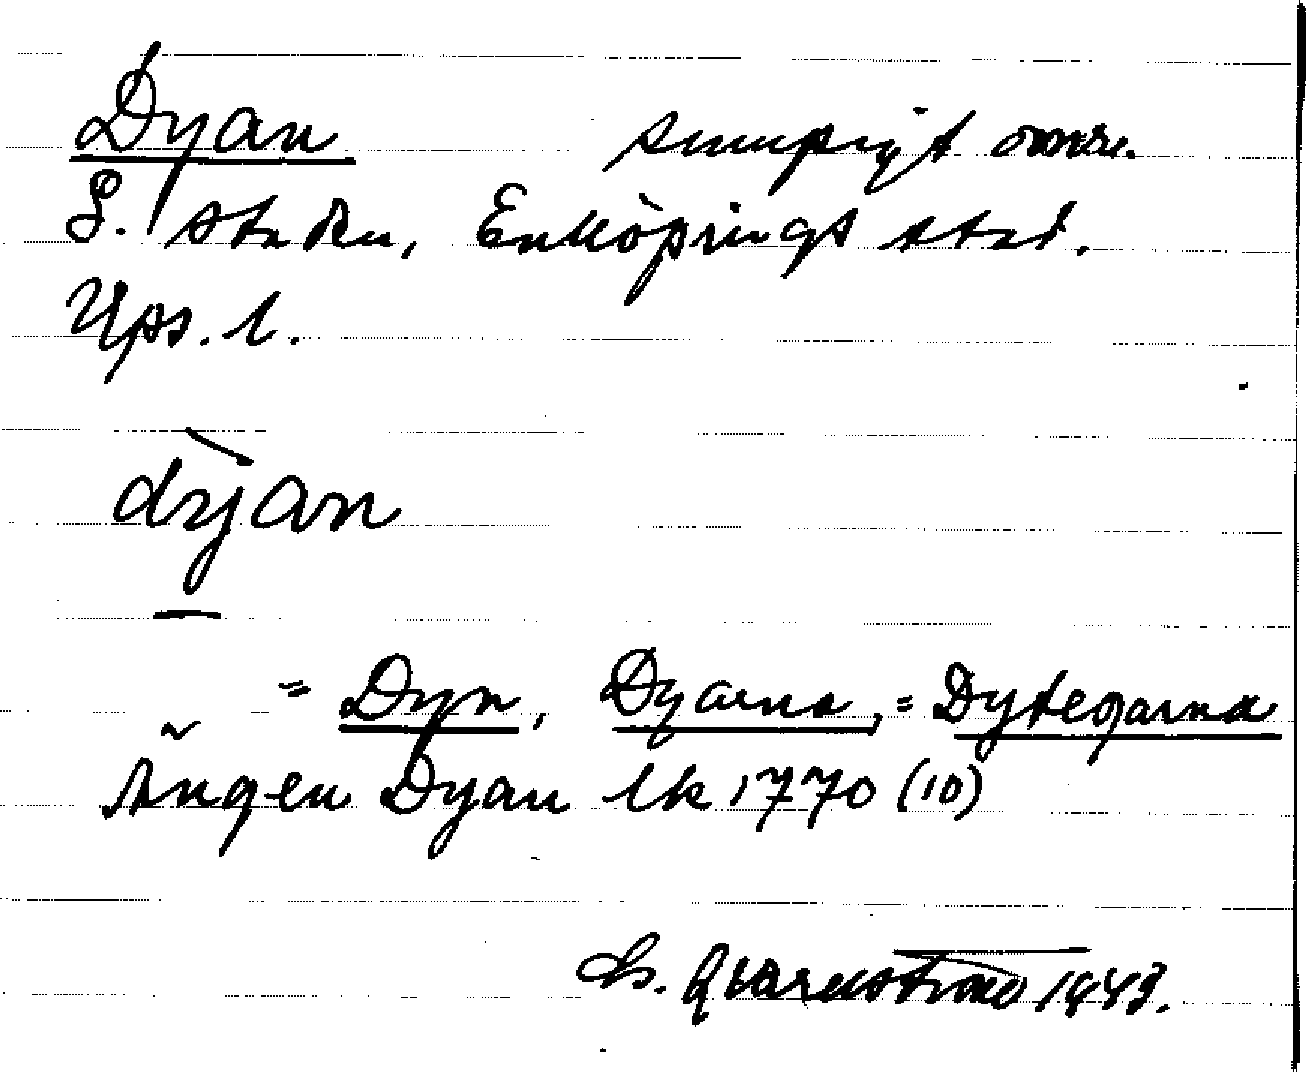 Dyan sumpigt områ.
S. staden, Enköpings stad.
Ups. l.
dỳan
= Dyn, Dyarna, = Dytegarna
Ängen Dyan lk 1770 (10)
Qvarnström 1943.